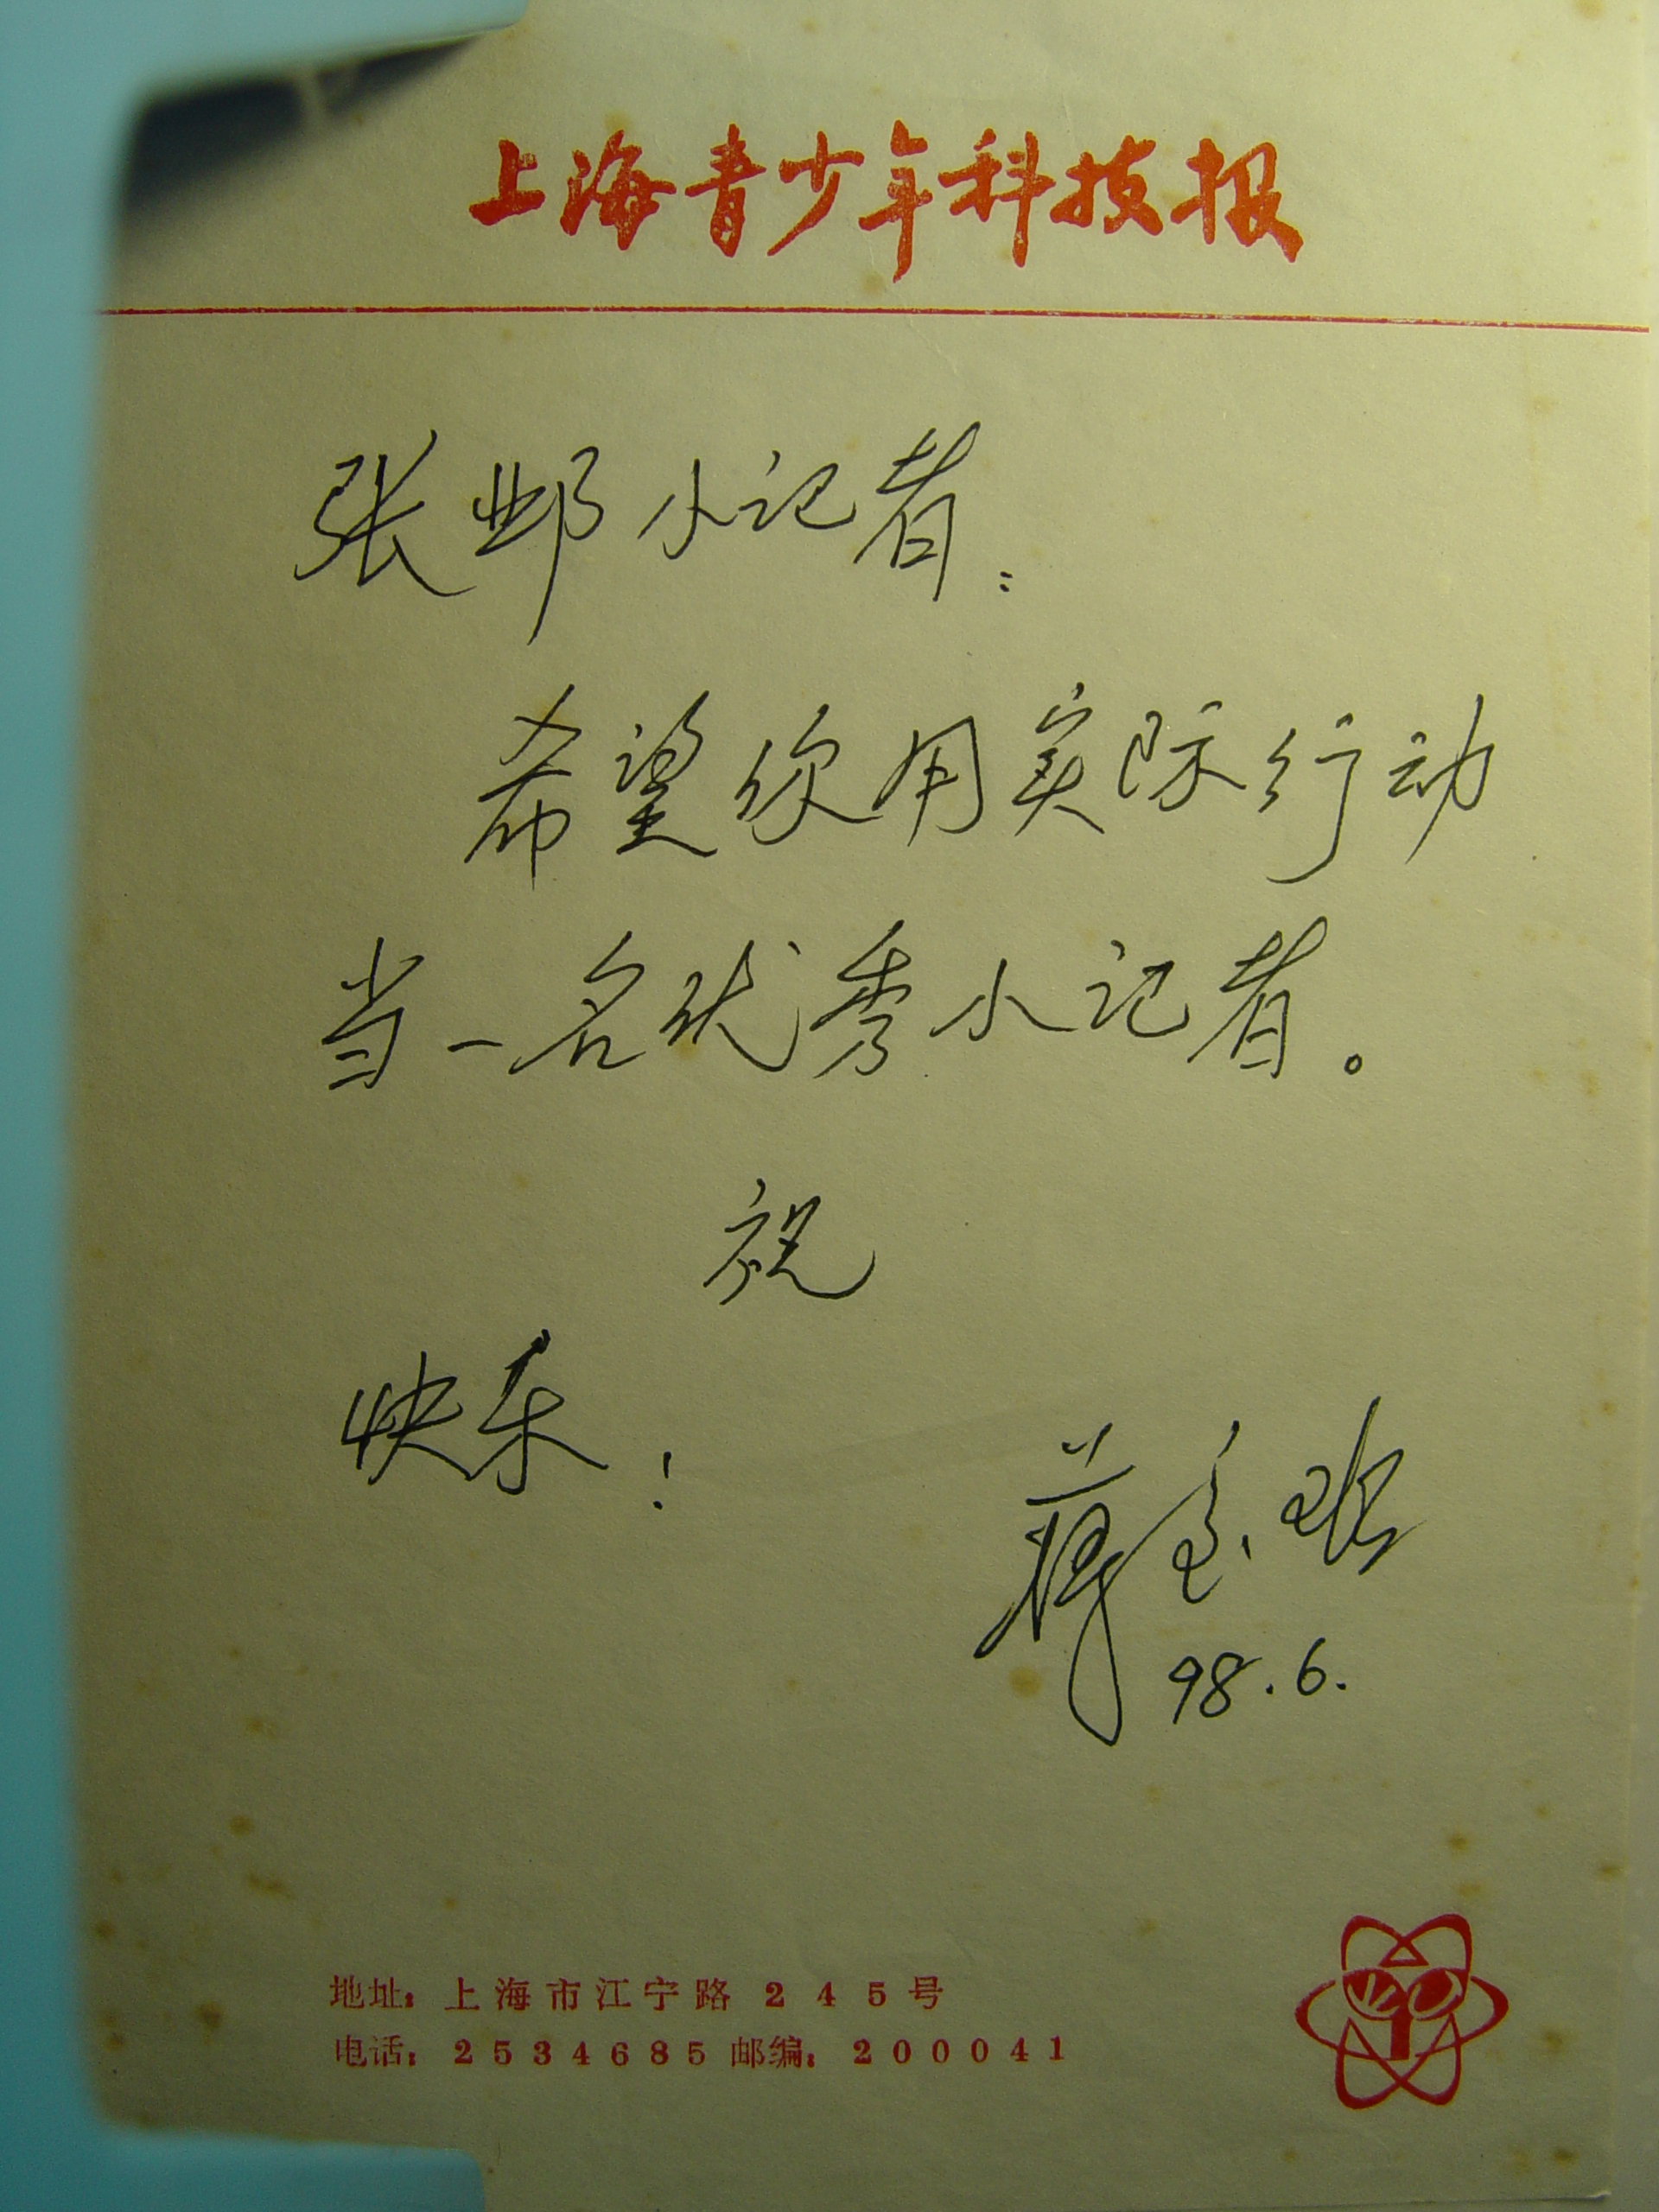 上海青少年科技报
张邺小记者：
希望你用实际行动
当一名优秀小记者。
祝
快乐！
蒋
98.6.
地址：上海市江宁路245号
电话：2534685 邮编：200041